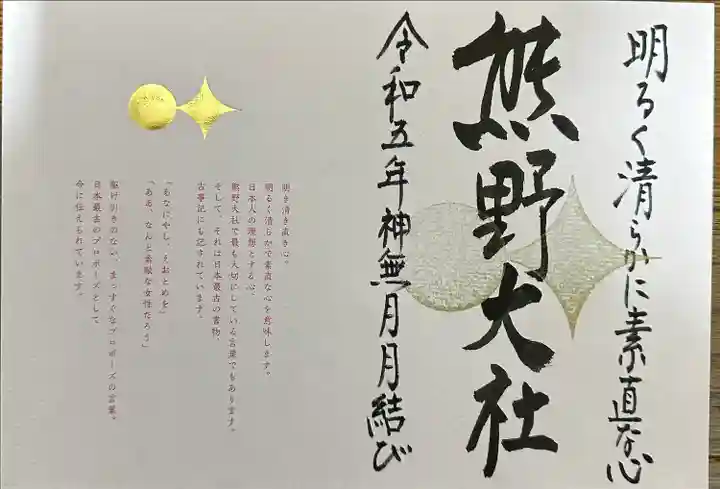 明るく清らかに素直な心
熊野大社
令和五年神無月月結び
明き清き直き心。
明るく清らかで素直な心を意味します。
日本人の理想とする心、
熊野大社で最も大切にしている言葉でもあります。
そして、それは日本最古の書物、
古事記にも記されています。
「あなにやし、えおとめを」
「ああ、なんと素敵な女性だろう」
駆け引きのない、まっすぐなプロポーズの言葉。
日本最古のプロポーズとして
今に伝えられています。